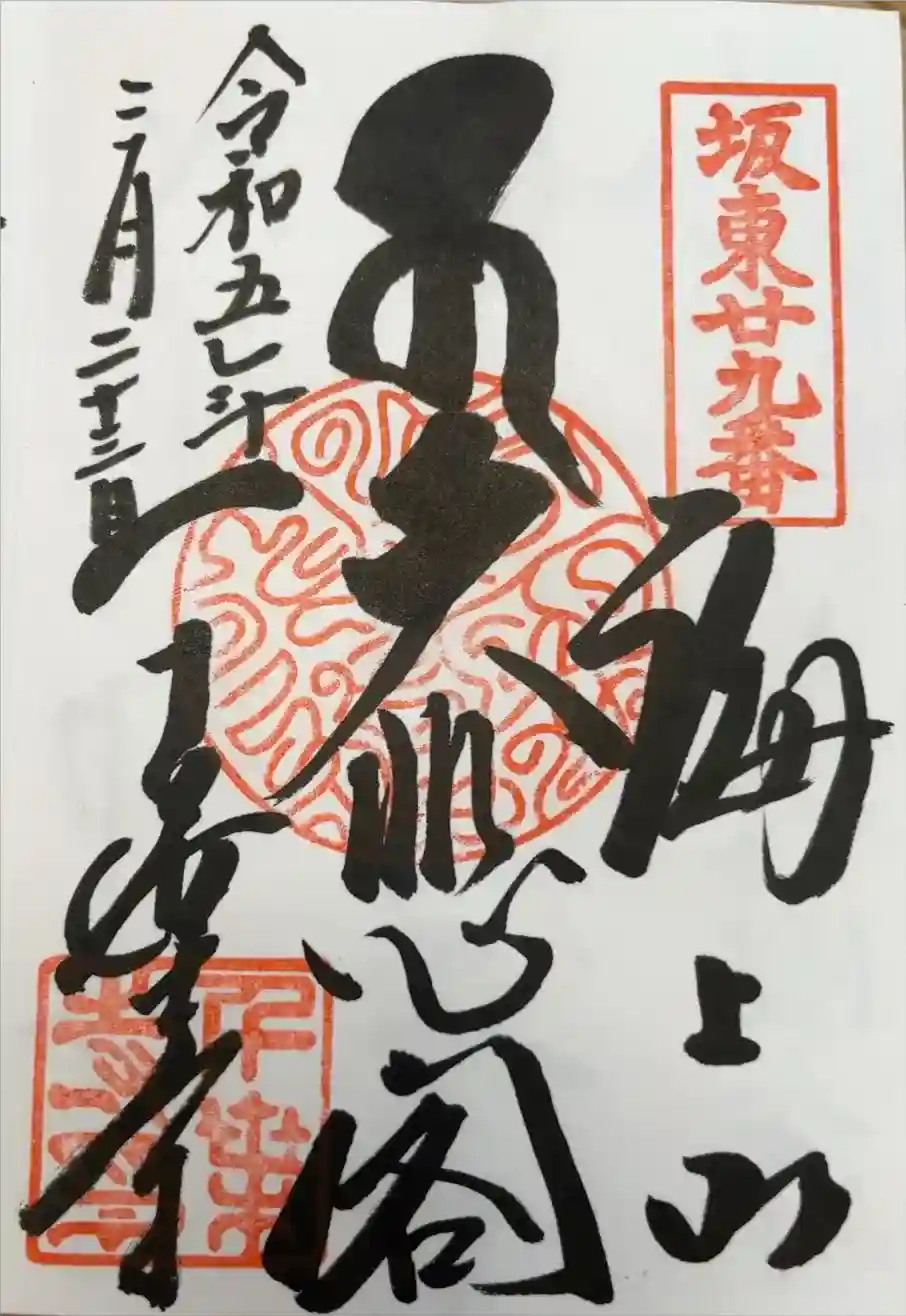 坂東廿九番
海上山
大悲閣
千葉寺
令和五年
二月二十三日